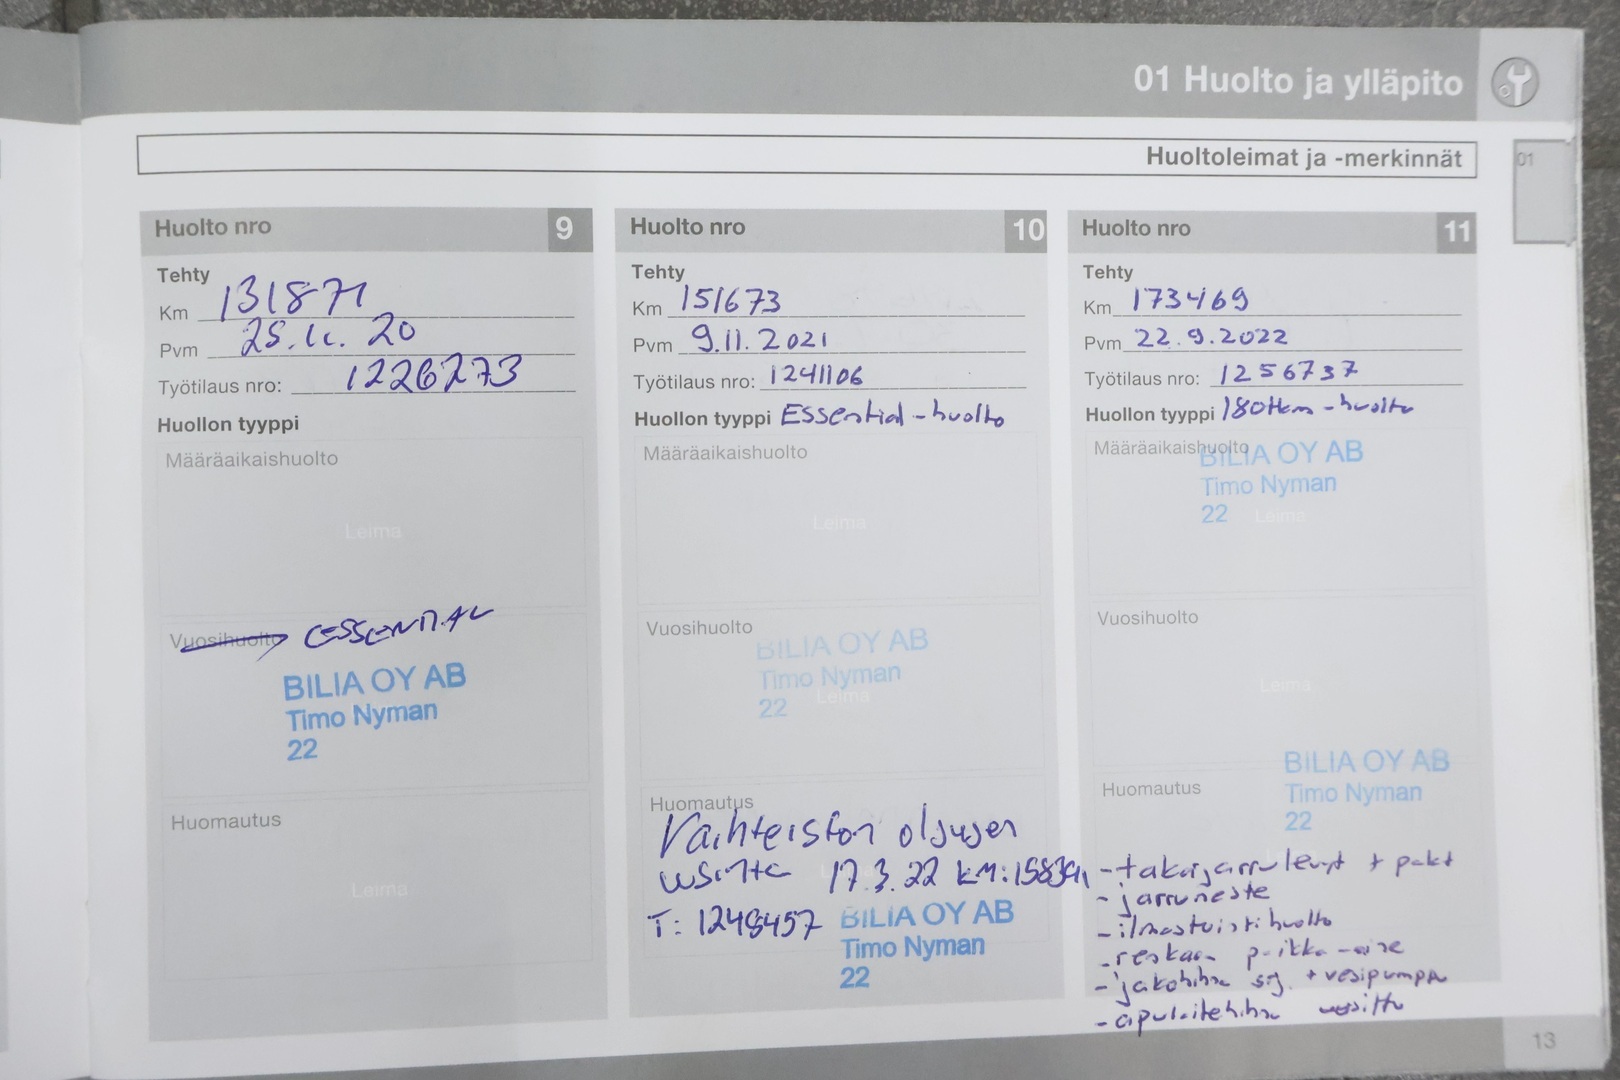 01 Huolto ja ylläpito
Huoltoleimat ja -merkinnät
01
Huolto nro 9
Tehty
Km 131871
Pvm 25.11. 20
Työtilaus nro: 1226273
Huollon tyyppi
Määräaikaishuolto
Leima
Vuosihuolto ESSENTIAL
BILIA OY AB
Timo Nyman
22
Huomautus
Leima
Huolto nro 10
Tehty
Km 151673
Pvm 9.11.2021
Työtilaus nro: 1241106
Huollon tyyppi Essential-huolto
Määräaikaishuolto
Leima
Vuosihuolto
BILIA OY AB
Timo Nyman
Leima
22
Huomautus
Vaihteiston öljyjen
17.3.22 KM:
T: 1248457
BILIA OY AB
Timo Nyman
22
Huolto nro 11
Tehty
Km 173469
Pvm 22.9.2022
Työtilaus nro: 1256737
Huollon tyyppi 180tkm-huolto
Määräaikaishuolto
BILIA OY AB
Timo Nyman
22
Leima
Vuosihuolto
Leima
BILIA OY AB
Huomautus
Timo Nyman
22
-takajarrulevyt + palat
-jarruneste
-ilmastointihuolto
-renkaan paikka-aine
-jakohihna sj. +vesipumppu
-apulaitehihna
13